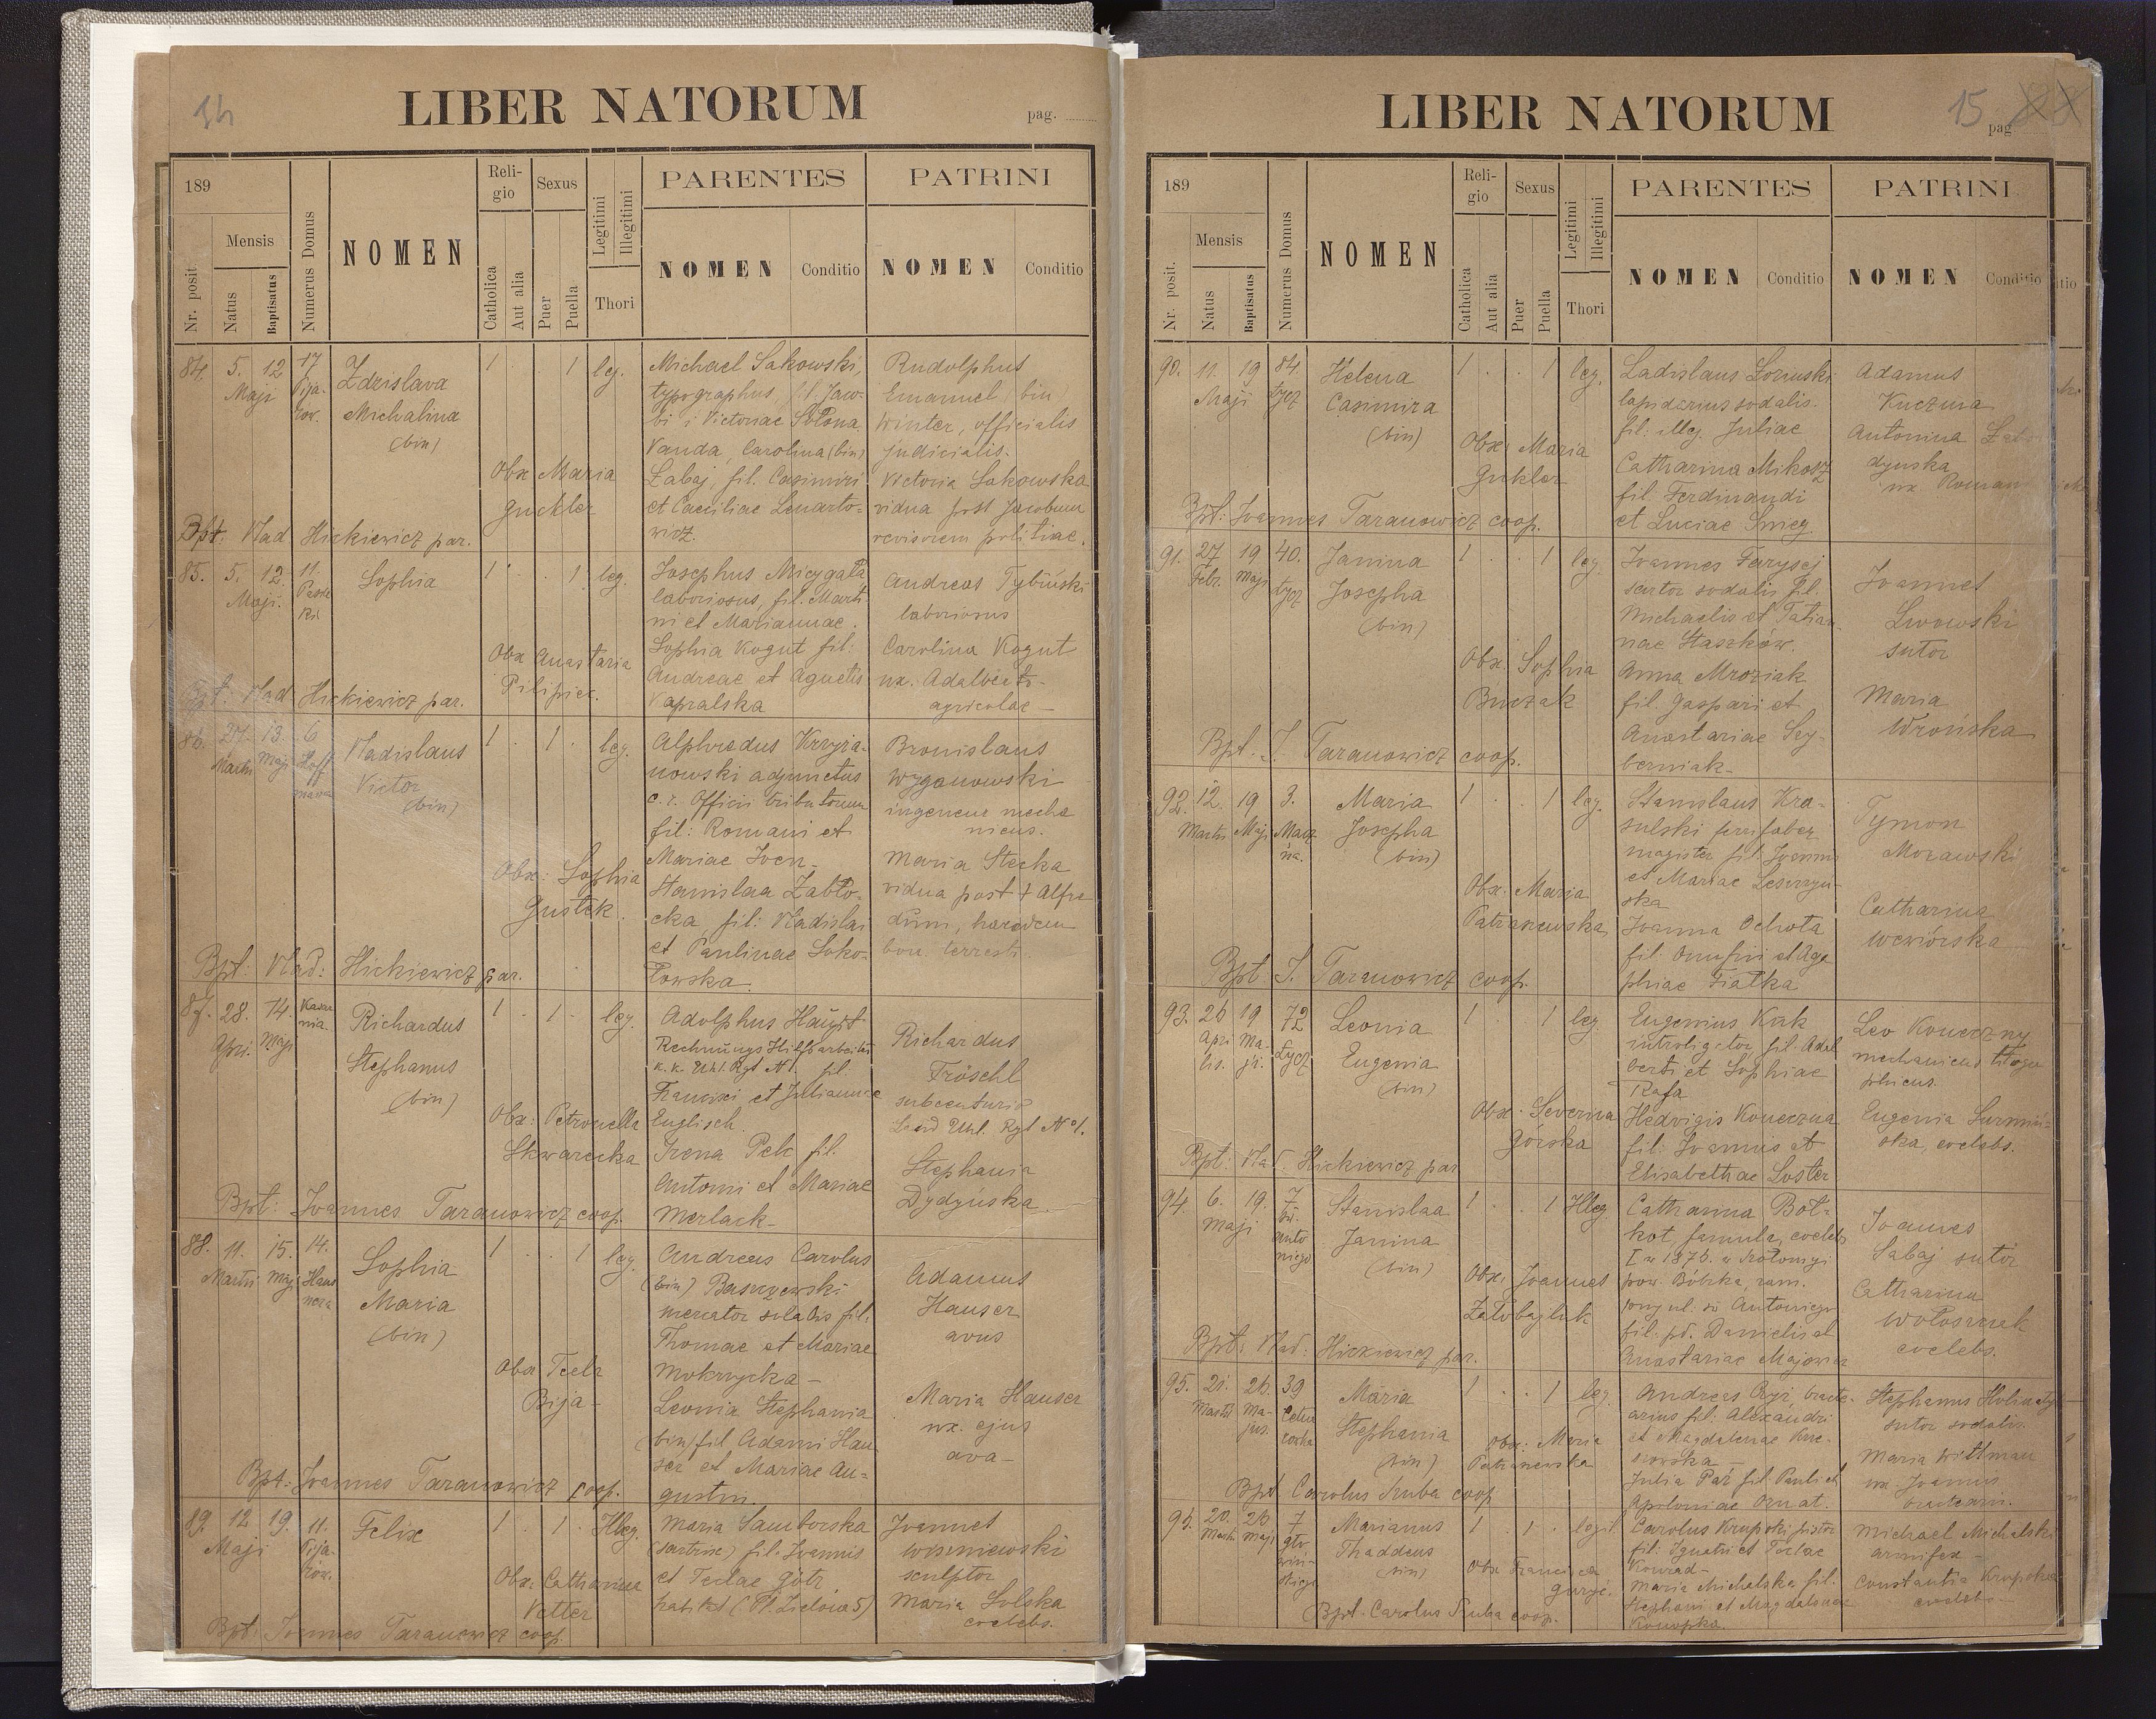 14
LIBER NATORUM
pag.
189
Mensis
Nr. posit
Natus
Baptisatus
Numerus Domus
NOMEN
Religio
Catholica
Aut alia
Sexus
Puer
Puella
Legitimi
Illegitimi
Thori
PARENTES
NOMEN
Conditio
PATRINI
NOMEN
Conditio
84. 5. 12 17
Maji
Zdzislava
Michalina
(bin)
1 1 leg.
Obx Maria
Guckler
Michael Sakowski,
typographus,
Vanda, Carolina (bin)
Zabaj, fil. Casimiri
et Caeciliae Lenarto-
wicz.
Rudolphus
Emanuel (bin)
Winter, officialis
judicialis.
Victoria Sakowska
vidua post Jacobum
revisorem politiae.
Bpt. Vlad Hickiewicz par.
85. 5. 12. 11.
Maji.
Sophia
1 1 leg.
Obx Anastasia
Pilipiec.
Josephus Micygała
laboriosus, fil. Marti-
ni et Mariannae.
Sophia Kogut fil:
Andreae et Agnetis
Kapralska
Andreas Tybiński
laboriosus
Carolina Kogut
ux. Adalberti-
agricolae
Bpt. Vlad Hickiewicz par.
86. 27. 13. 6
Martii Maji
Vladislaus
Victor
(bin)
1 1 leg.
Obx: Sophia
Gustek.
Alphredus Krzyża-
nowski adjunctus
c. r. Officii tributorum
fil: Romani et
Mariae
Stanislaa Zabło-
cka, fil: Vladislai
et Paulinae Soko-
łowska.
Bronislaus
Wyganowski
ingeneur mecha
nicus.
Maria Stecka
vidua post + Alfre
dum, haeredem
bon. terrestr.
Bpt: Vlad: Hickiewicz par.
87. 28. 14.
April. Maji
Richardus
Stephanus
(bin)
1 1 leg.
Obx: Petronella
Skwarecka
Adolphus Haupt
Rechnungs Hilfsarbeiter
k. k. Uhl. Rgt N 1. fil.
Francisci et Juliannae
Englisch.
Irena Pelc fil.
Antonii et Mariae
Merlack-
Richardus
Fröschl
subcenturio
Uhl. Rgt No 1.
Stephania
Dydyńska
Bpt: Joannes Taranowicz coop.
88. 11. 15. 14.
Martii Maji
Sophia
Maria
(bin)
1 1 leg.
Obx Tecla
Bija-
Andreas Carolus
(bin) Baszczewski
mercator sodalis fil.
Thomae et Mariae
Mokrzycka-
Leonia Stephania
(bin) fil Adami Hau
ser et Mariae Au-
gustin.
Adamus
Hauser
avus
Maria Hauser
ux. ejus
ava-
Bpt: Joannes Taranowicz coop.
89. 12 19. 11.
Maji
Felix
1 1 Illeg.
Obx: Catharina
Vetter
Maria Samborska
(sartrix) fil. Joannis
et Teclae Götz
habitat (Pl. Zielona 5)
Joannes
Wiszniewski
sculptor
Maria Solska
coelebs.
Bpt. Joannes Taranowicz coop.
LIBER NATORUM
15 pag
189
Mensis
Nr. posit.
Natus
Baptisatus
Numerus Domus
NOMEN
Religio
Catholica
Aut alia
Sexus
Puer
Puella
Legitimi
Illegitimi
Thori
PARENTES
NOMEN
Conditio
PATRINI
NOMEN
Conditio
90. 11. 19 84
Maji Łycz
Helena
Casimira
(bin)
1 1 leg.
Obx: Maria
Gukler
Ladislaus
lapidarius sodalis.
fil. illeg. Juliae
Catharina Mikosz
fil Ferdinandi
et Luciae Śnieg.
Adamus
Kuczma
Antonina
dyńska
ux. Roman
Bpt: Joannes Taranowicz coop.
91. 27 19 40.
Febr. Maji Łycz
Janina
Josepha
(bin)
1 1 leg
Obx. Sophia
Buczak
Joannes Farysej
sartor sodalis fil.
Michaelis et Tatian-
nae Staszków.
Anna Mroziak
fil. Gaspari et
Anastasiae Sey-
berniak-
Joannes
Lwowski
sutor
Maria
Wrońska
Bpt. J. Taranowicz coop.
92. 12. 19 3.
Martii Maji
Maria
Josepha
(bin)
1 1 leg.
Obx. Maria
Patranowska
Stanislaus Kra-
sulski ferrifaber
magister fil. Joannis
et Mariae Leszczyń-
ska
Joanna Ochota
fil. Onufrii et Aga
phiae Fiałka
Tymon
Morawski
Catharina
Wewiórska
Bpt. J. Taranowicz coop.
93. 26 19 72
Apri Ma- Łycz
lis. ji.
Leonia
Eugenia
(bin)
1 1 leg
Obx. Severina
Górska
Eugenius Kuk
introligator fil. Adal
berti et Sophiae
Rafa
Hedvigis Koneczna
fil: Joannis et
Elisabethae Soster
Leo Koneczny
mechanicus
phicus.
Eugenia
ska, coelebs.
Bpt: Vlad. Hickiewicz par
94. 6. 19. 7
Maji św.
Anto
niego
Stanislaa
Janina
(bin)
1 1 Illeg
Obx. Joannes
Catharina Bot-
kot, famula, coelebs
pow. Bóbrka, zam.
ul. św Antoniego
fil. pd. Danielis et
Anastasiae
Joannes
Sabaj sutor
Catharina
Wołoszczak
coelebs.
Bpt: Vlad: Hickiewicz par.
95. 21. 26. 39
Martii Ma-
jus.
Maria
Stephania
(bin)
1 1 leg.
obx: Maria
Patranowska
Andreas
arius fil: Alexandri
et Magdalenae
Julia Paź fil. Pauli et
Apoloniae
Stephanus
sutor sodalis.
Maria Wittman
ux. Joannis
Bpt. Carolus Kuba coop
96. 20. 26 7
Martii Maji
Marianus
Thaddeus
(bin)
1 1 legit.
Obx Francisca
Carolus Krupski pistor
fil. Ignatii et Teclae
Konrad-
Maria Michalska fil.
Stephani et Magdalenae
Konopka
Michael Michalski
armifex-
Constantia Krupska
coelebs
Bpt. Carolus Kuba coop.